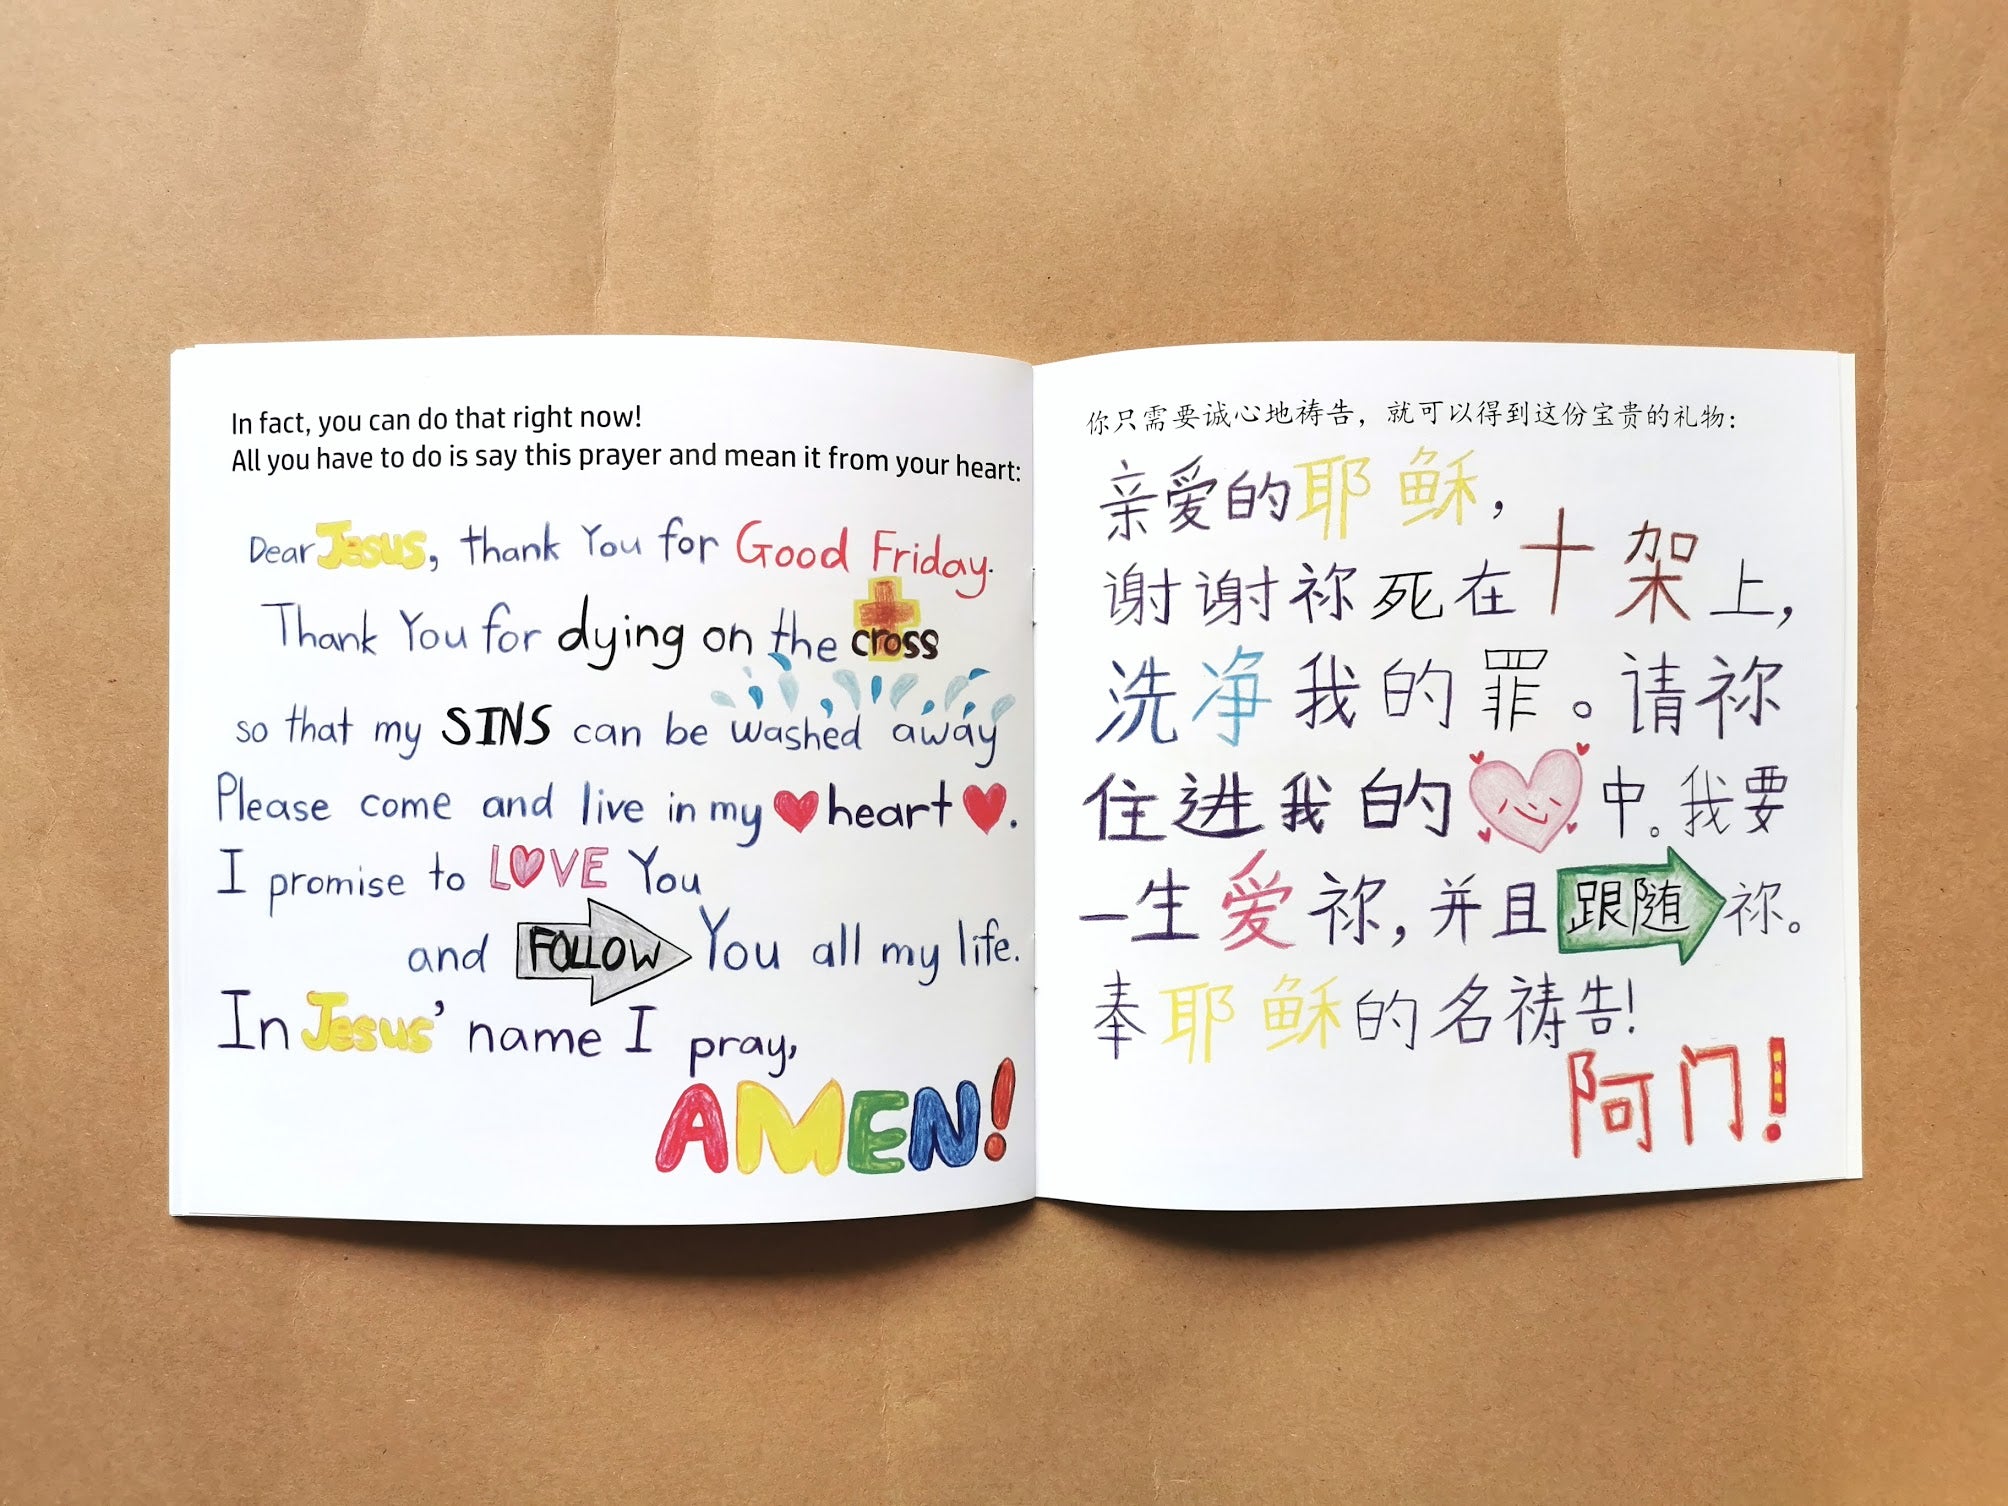 In fact, you can do that right now!
All you have to do is say this prayer and mean it from your heart:
Dear Jesus, thank You for Good Friday.
Thank You for dying on the cross
so that my SINS can be washed away
Please come and live in my heart.
I promise to LOVE You
and FOLLOW You all my life.
In Jesus' name I pray,
AMEN!
你只需要诚心地祷告，就可以得到这份宝贵的礼物：
亲爱的耶稣，
谢谢祢死在十架上，
洗净我的罪。请祢
住进我的心中。我要
一生爱祢，并且跟随祢。
奉耶稣的名祷告！
阿门！